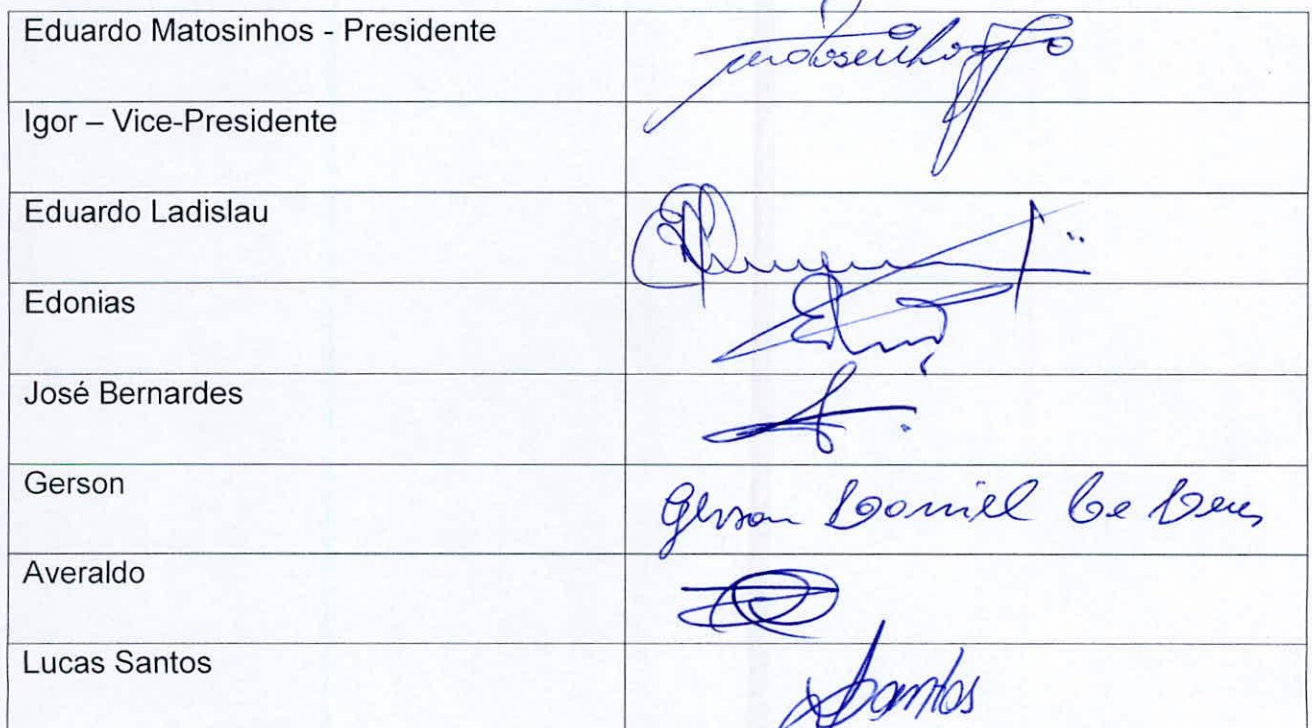 Eduardo Matosinhos - Presidente
Igor – Vice-Presidente
Eduardo Ladislau
Edonias
José Bernardes
Gerson
Gerson Daniel de Deus
Averaldo
Lucas Santos
Santos